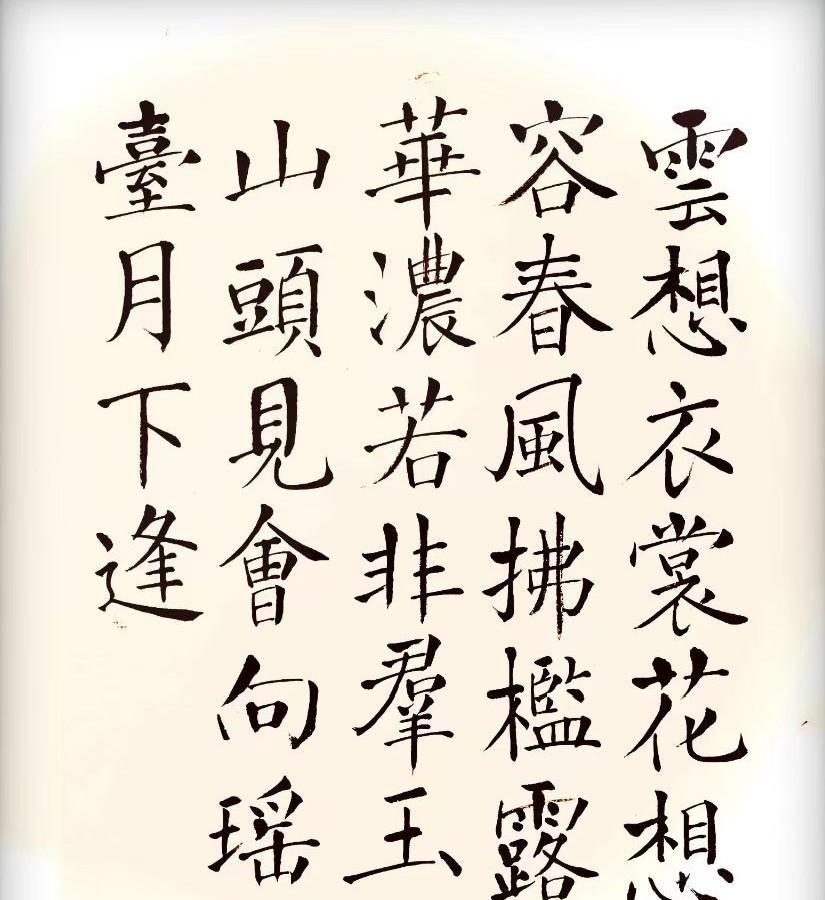 雲想衣裳花想
容春風拂檻露
華濃若非羣玉
山頭見會向瑶
臺月下逢